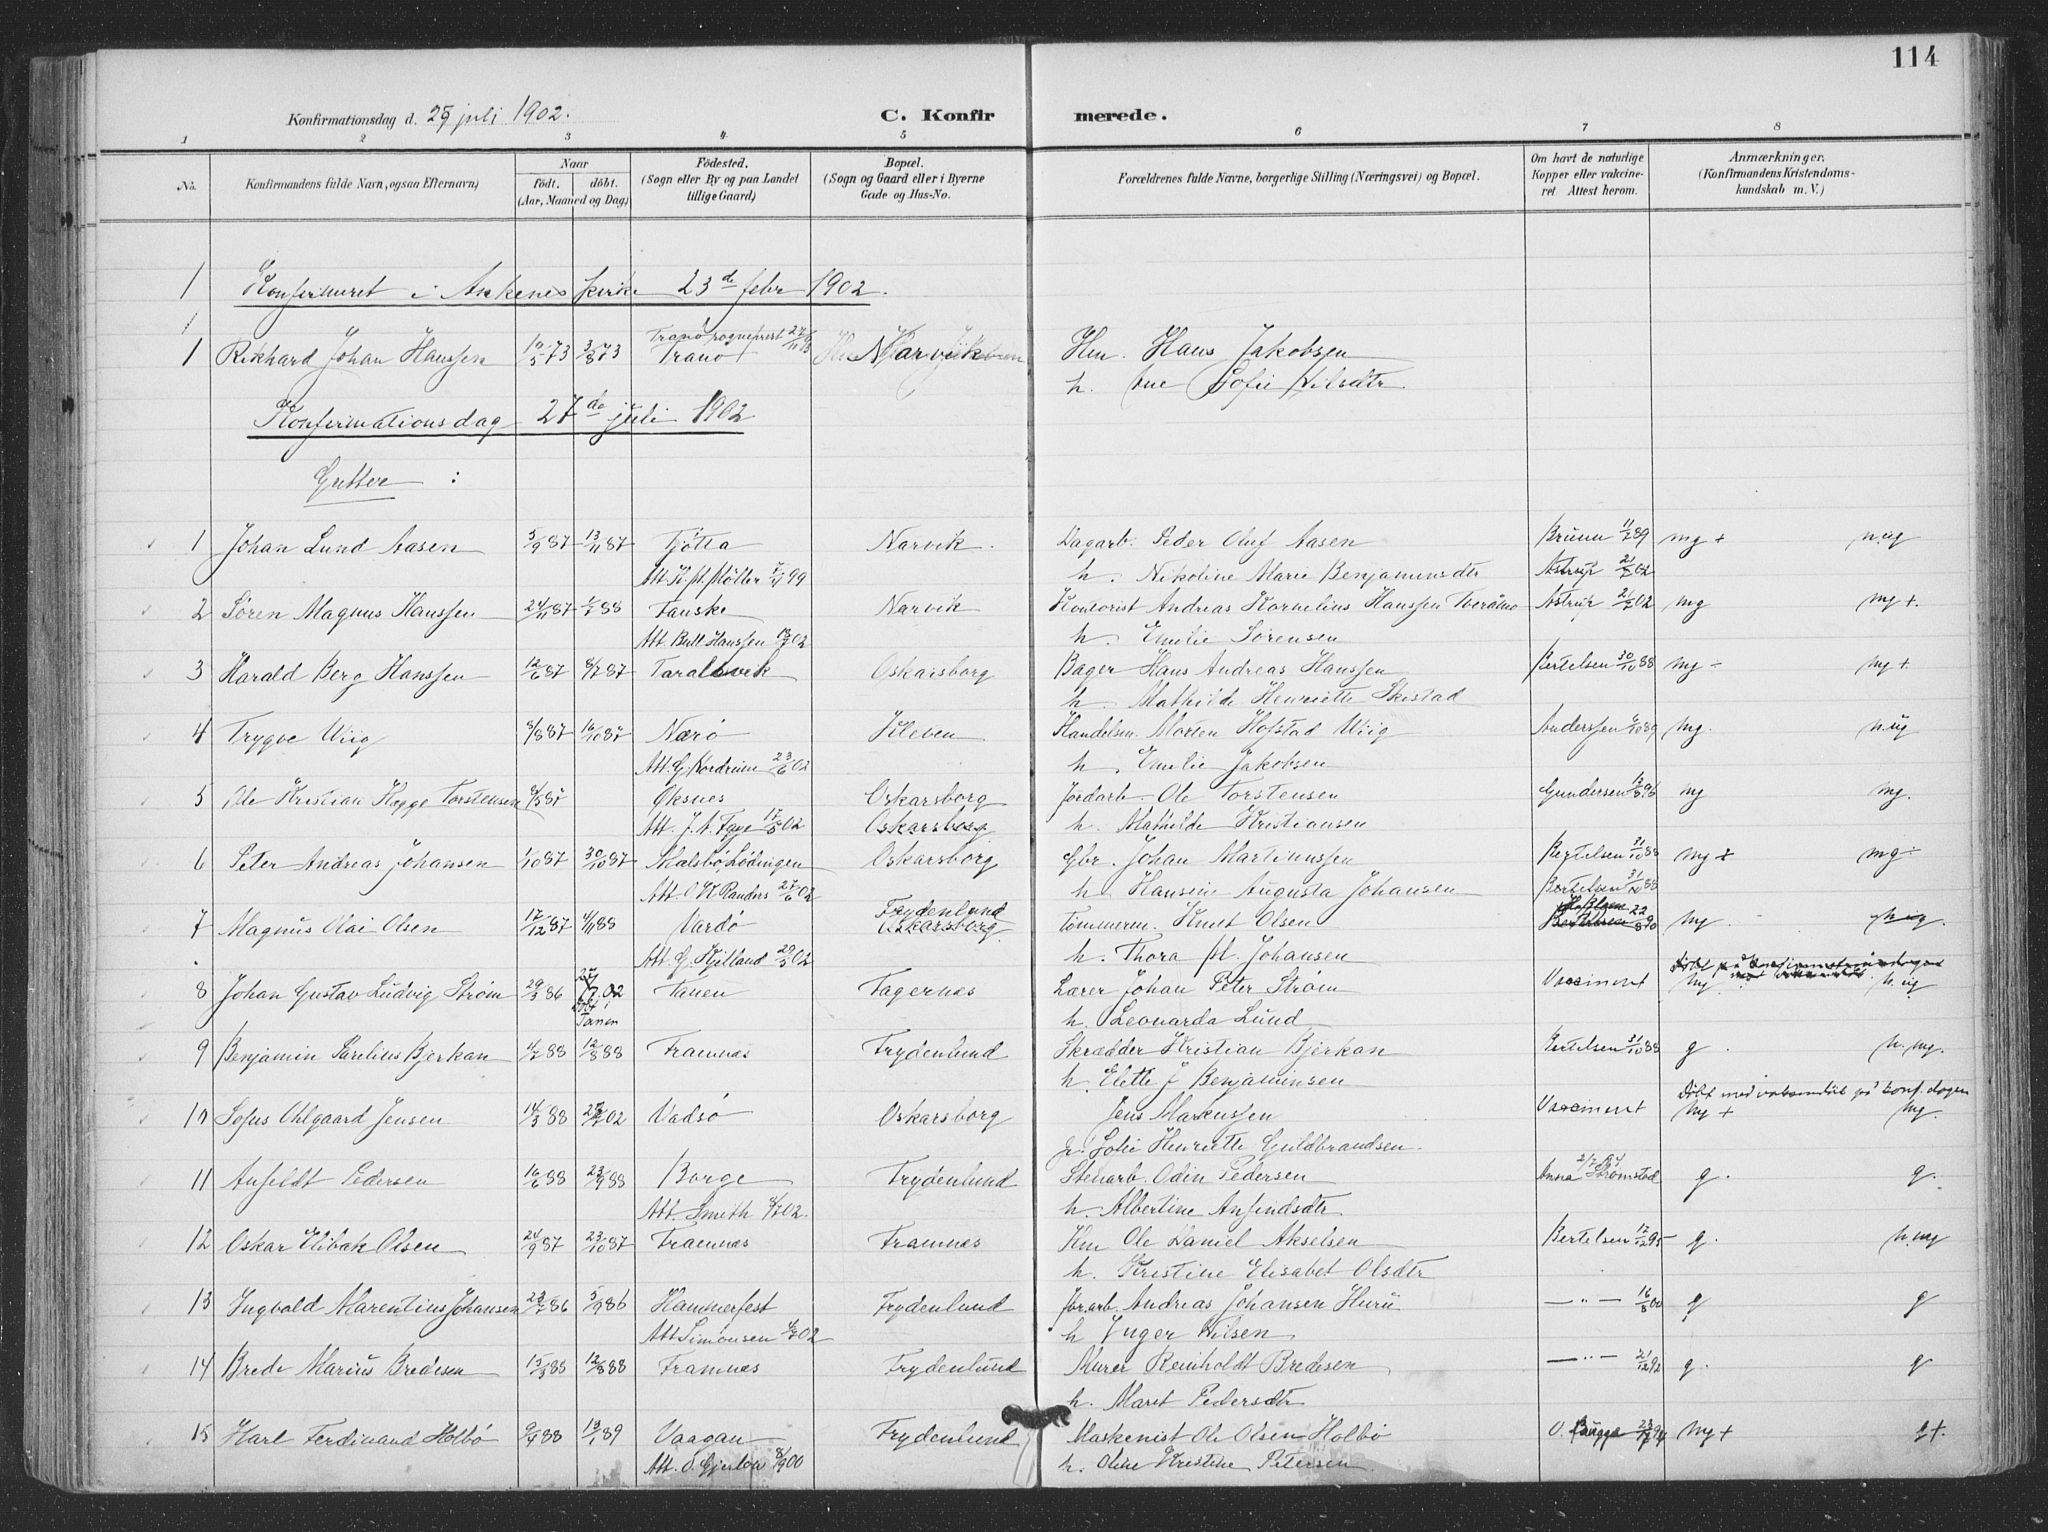 114
Konfirmationsdag d. 25 juli 1902. C. Konfirmerede.
1 2 3 4 5 6 7 8
No. Konfirmandens fulde Navn, ogsaa Efternavn) Naar födt. döbt. (Aar, Maaned og Dag) Födested. (Sogn eller By og paa Landet tillige Gaard) Bopæl. (Sogn og Gaard eller i Byerne Gade og Hus-No. Forældrenes fulde Navne, borgerlige Stilling (Næringsvei) og Bopæl. Om havt de naturlige Kopper eller vakcineret Attest herom. Anmærkninger. (Konfirmandens Kristendomskundskab m. V.)
1 Konfirmeret i Ankenes kirke 23de febr 1902.
1 Rikhard Johan Hanssen 10/5 73 3/8 73 Tranø Narvik Hm. Hans Jakobsen
h. Ane Sofie Nilsdtr.
Konfirmationsdag 27de juli 1902
Gutter :
1 Johan Lund Aasen 5/9 87 13/11 87 Tjötta Narvik. Dagarb. Peder Oluf Aasen Bruun 11/7 89 mg + n.ug
Att. K. M. Møller 7/4 99 h. Nikoline Marie Benjaminsdtr Astrup 21/7 02
2 Sören Magnus Hanssen 24/11 87 1/1 88 Fauske Narvik Kontorist Andreas Kornelius Hanssen Tveråmo Astrup 21/7 02 mg mg +.
Att. Bull Hanssen 02 h. Emelie Sörensen
3 Harald Berg Hanssen 12/6 87 8/7 87 Taraldsvik Oskarsborg Bager Hans Andreas Hanssen Bertelsen 30/10 88 mg ÷ mg +
h. Mathilde Henriette Skistad
4 Trygve Wiig 8/8 87 16/10 87 Nærö Kleven Handelsm. Morten Hofstad Wiig Anderssen 89 mg. n.ug
Att. G. Nordrum 23/6 02 h. Emelie Jakobsen
5 Ole Kristian Hegge Torstensen 8/5 87 Öksnes Oskarsborg Jordarb. Ole Torstensen Gundersen 13/8 96 mg mg.
Att. J. A. Faye 17/5 02 Oskarsborg h. Mathilde Kristiansen
6 Peter Andreas Johansen 1/10 87 30/10 87 Lödingen Oskarsborg Gbr. Johan Martinussen Bertelsen 31/10 88 mg + mg ÷
Att. O. W. Randers 27/6 02 h. Hansine Augusta Johansen Bertelsen 31/10 88
7 Magnus Olai Olsen 17/12 87 4/11 88 Vardö Frydenlund Oskarsborg Tömmerm. Knut Olsen Bertelsen 22/8 90 mg. n ug.
Att. G. Kjelland 29/5 02 h. Thora M. Johansen
8 Johan Gustav Ludvig Ström 29/3 86 27/7 02 döbt i Tanen Tanen Fagernes Lærer Johan Peter Ström Vaccineret mg n. ug
h. Leonarda Lund
9 Benjamin Parelius Bjerkan 4/7 88 12/8 88 Framnæs Frydenlund Skrædder Kristian Bjerkan Bertelsen 31/10 88 g. n. mg.
h. Elette J Benjaminsen
10 Sofus Ohlgaard Jensen. 14/3 88 27/7 02 Vadsö Oskarsborg Jens Markussen Vaccineret Döbt med vaksendåb på konf.dagen mg + mg.
Sofie Henriette Guldbrandsen.
11 Anfeldt Pedersen 16/6 88 23/9 88 Borge Frydenlund Stenarb. Odin Pedersen Anna Strömstad 2/7 94 g. g.
Att. Smith 8/7 02. h. Albertine Anfindsdtr
12 Oskar Elibak Olsen 24/9 87 23/10 87 Framnæs Framnæs Hm Ole Daniel Akselsen Bertelsen 17/12 95 g. n. mg
h. Kristine Elisabet Olsdtr
13 Ingvald Marentius Johansen 23/7 86 5/9 86 Hammerfest Frydenlund Jor.arb. Andreas Johansen Huru — " — 16/8 00 g g
Att Simonsen 02 h Inger Nilsen
14 Brede Marius Bredesen 15/3 88 12/8 88 Framnæs Frydenlund Murer Reinholdt Bredesen — " — 21/12 92 g. g
h. Maret Pedersdtr
15 Karl Ferdinand Holbö 9/9 88 13/1 89 Vaagan Frydenlund Maskenist Ole Olsen Holbö O. Bugge 23/7 94 mg + g +.
Att. O. Gjerlöw 8/ 900 h. Oline Kristine Petersen